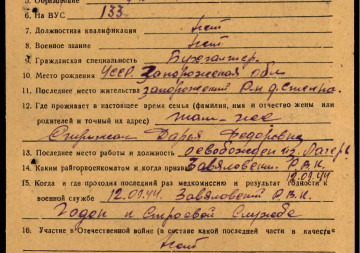 5. Образование
6. На ВУС 133
7. Должностная квалификация нет
8. Военное звание нет
9. Гражданская специальность Бухгалтер.
10. Место рождения УССР, Запорожская обл
11. Последнее место жительства запорожский Р-н д.
12. Где проживает в настоящее время семья (фамилия, имя и отчество жены или
родителей и точный их адрес) там-же
Дарья Федоровна
13. Последнее место работы и должность освобожден из Лагеря
14. Каким райгорвоенкоматом и когда призван Завяловский Р.В.К.
12.01.44
15. Когда и где проходил последний раз медкомиссию и результат годности к
военной службе 12.01.44. Завяловский Р.В.К.
Годен к Строевой Службе
16. Участие в Отечественной войне (в составе какой последней части в качестве
нет